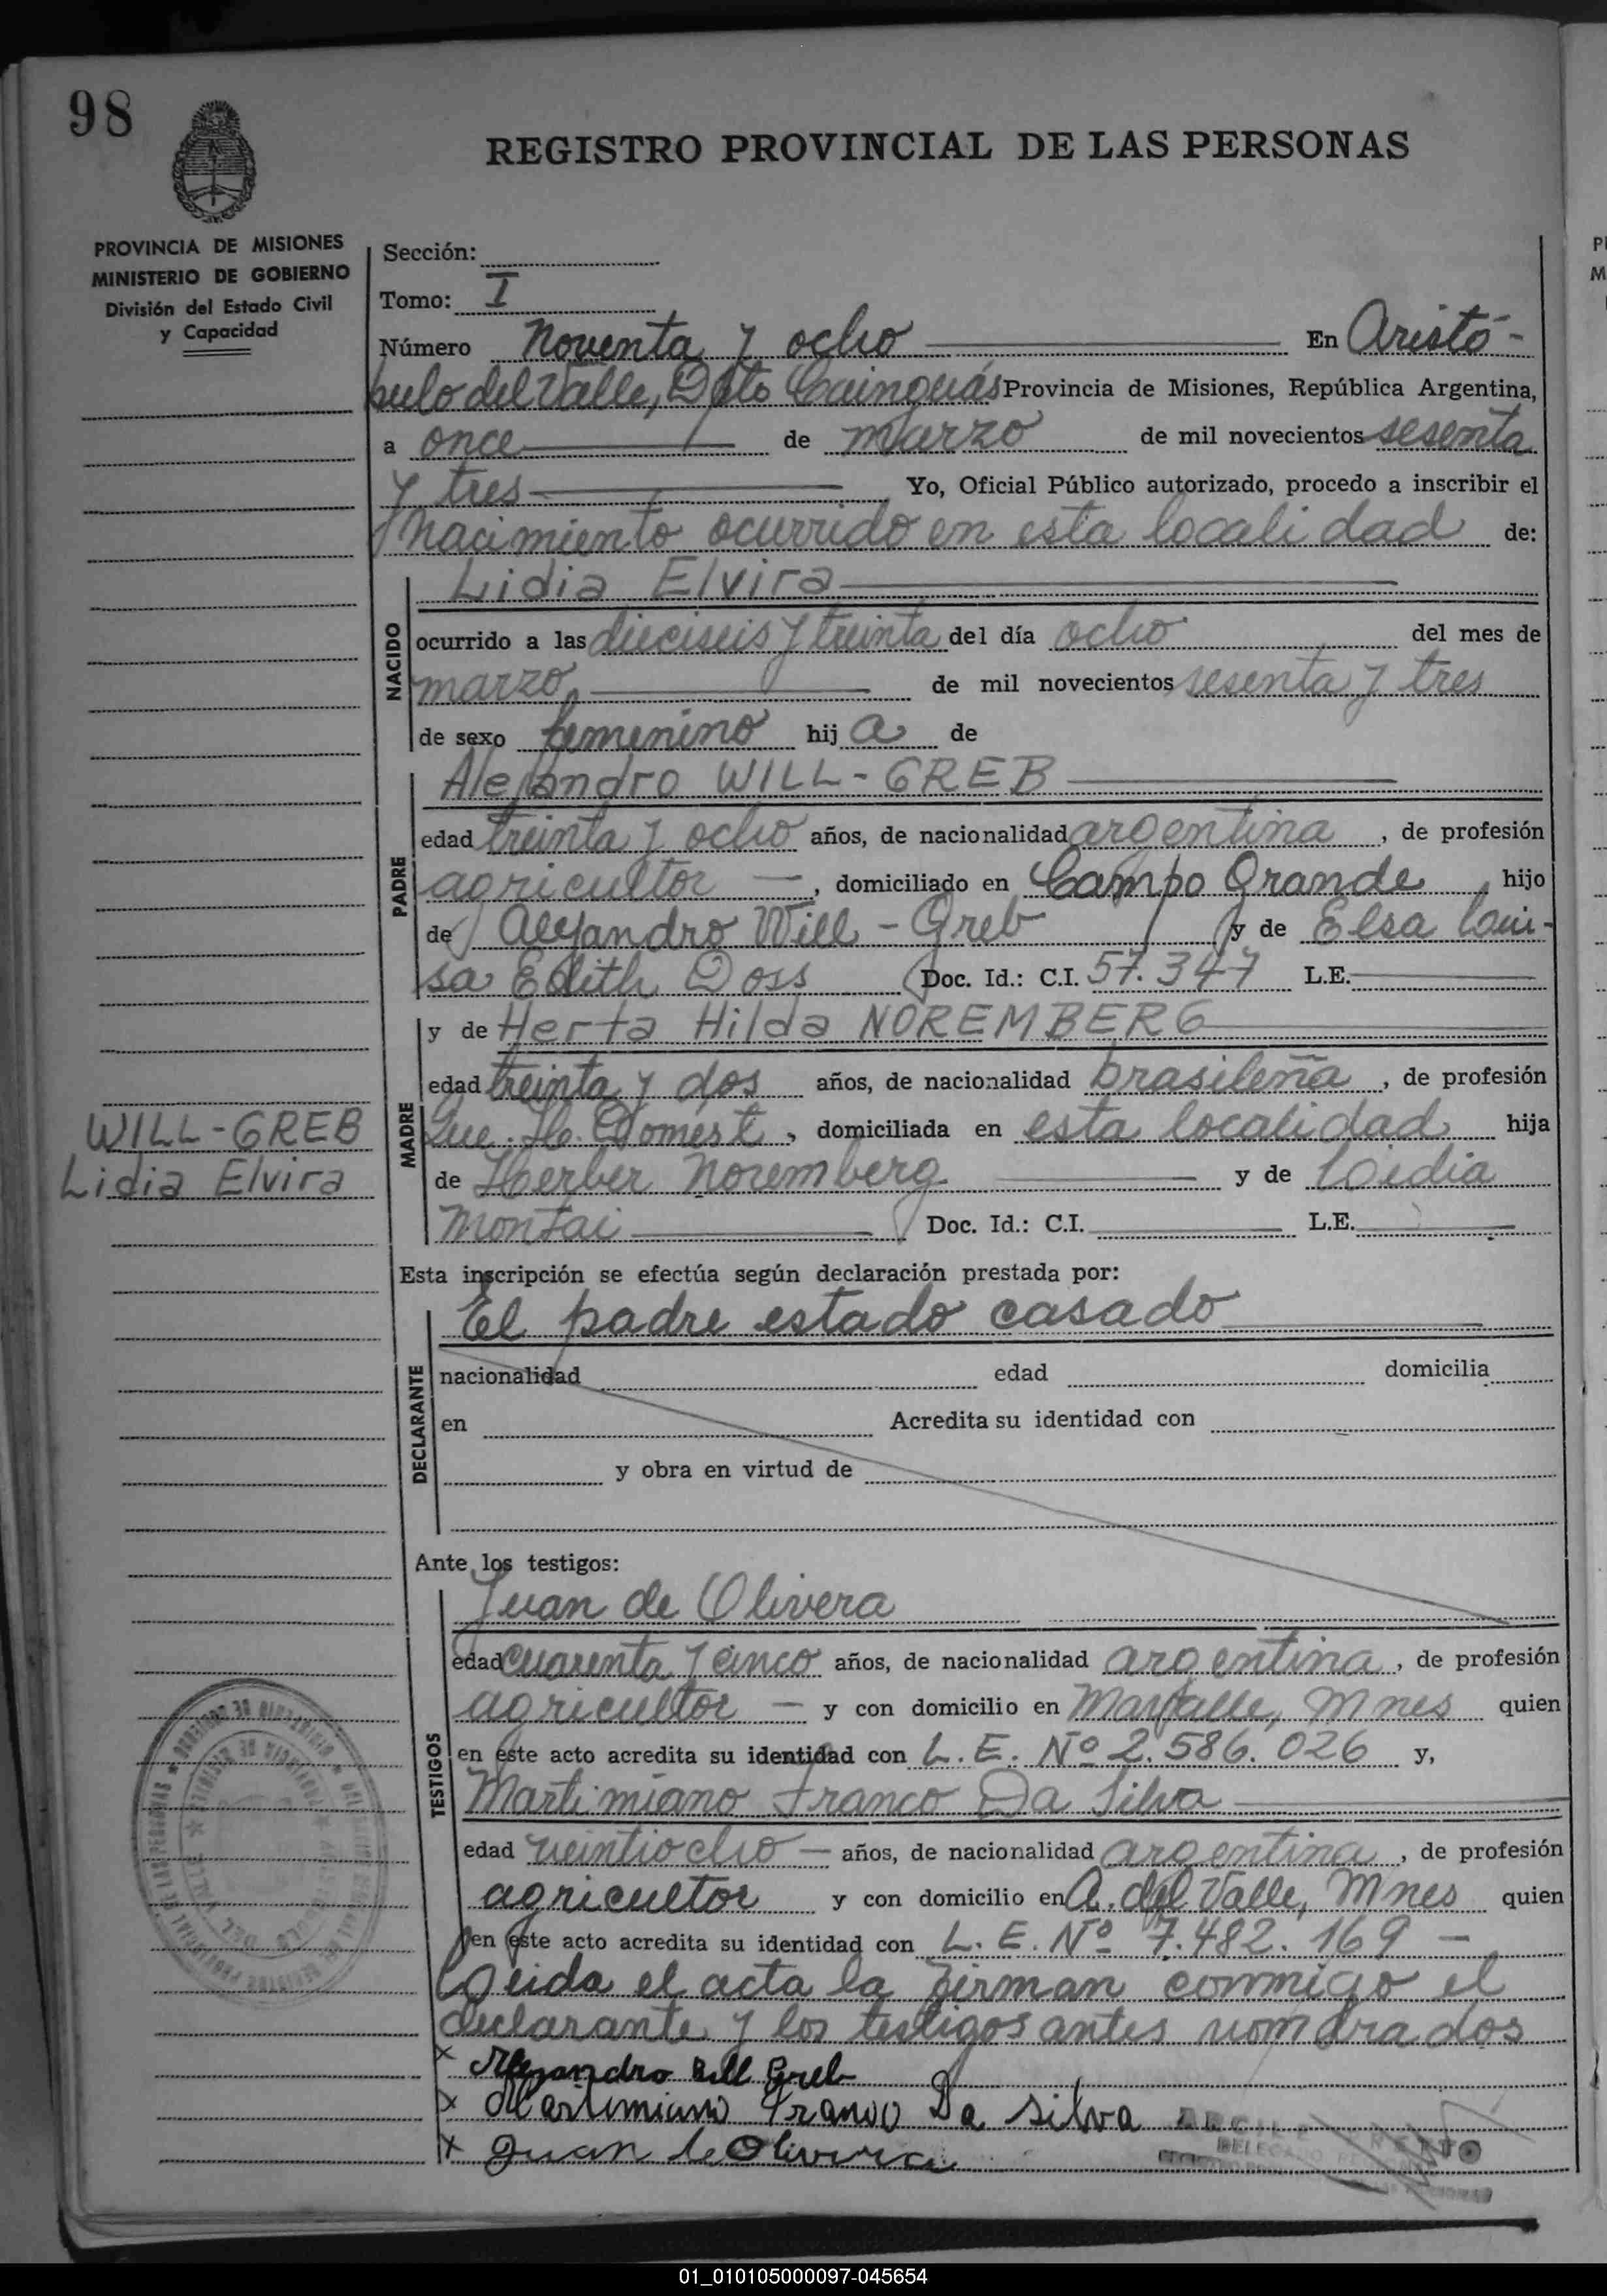 98
REGISTRO PROVINCIAL DE LAS PERSONAS
PROVINCIA DE MISIONES
MINISTERIO DE GOBIERNO
División del Estado Civil
y Capacidad
Sección:
Tomo: I
Número Noventa y ocho En Aristó-
bulo del Valle, Dpto Cainguás Provincia de Misiones, República Argentina,
a once de marzo de mil novecientos sesenta
y tres Yo, Oficial Público autorizado, procedo a inscribir el
Nacimiento ocurrido en esta localidad de:
NACIDO
Lidia Elvira
ocurrido a las dieciseis y treinta del día ocho del mes de
marzo de mil novecientos sesenta y tres
de sexo femenino hij a de
PADRE
Alejandro WILL-GREB
edad treinta y ocho años, de nacionalidad argentina, de profesión
agricultor —, domiciliado en Campo Grande, hijo
de Alejandro Will - Greb y de Elsa Loui-
sa Edith Doss Doc. Id.: C.I. 57.347 L.E.
MADRE
y de Herta Hilda NOREMBERG
edad treinta y dos años, de nacionalidad brasileña, de profesión
Que. Ho. Domést., domiciliada en esta localidad hija
de Herber Noremberg y de Loidia
Montai Doc. Id.: C.I. L.E.
WILL-GREB
Lidia Elvira
Esta inscripción se efectúa según declaración prestada por:
DECLARANTE
El padre estado casado
nacionalidad edad domicilia
en Acredita su identidad con
y obra en virtud de
Ante los testigos:
TESTIGOS
Juan de Olivera
edad cuarenta y cinco años, de nacionalidad argentina, de profesión
agricultor — y con domicilio en Mnes quien
en este acto acredita su identidad con L.E. Nº 2.586.026 y,
Martimiano Franco Da Silva
edad veintiocho — años, de nacionalidad argentina, de profesión
agricultor y con domicilio en A. del Valle, Mnes quien
en este acto acredita su identidad con L.E. Nº 7.482.169 —
Leida el acta la firman conmigo el
declarante y los testigos antes nombrados
x Alejandro Will Greb
x Martimiano Franco Da Silva
x Juan de Olivera
01_010105000097-045654